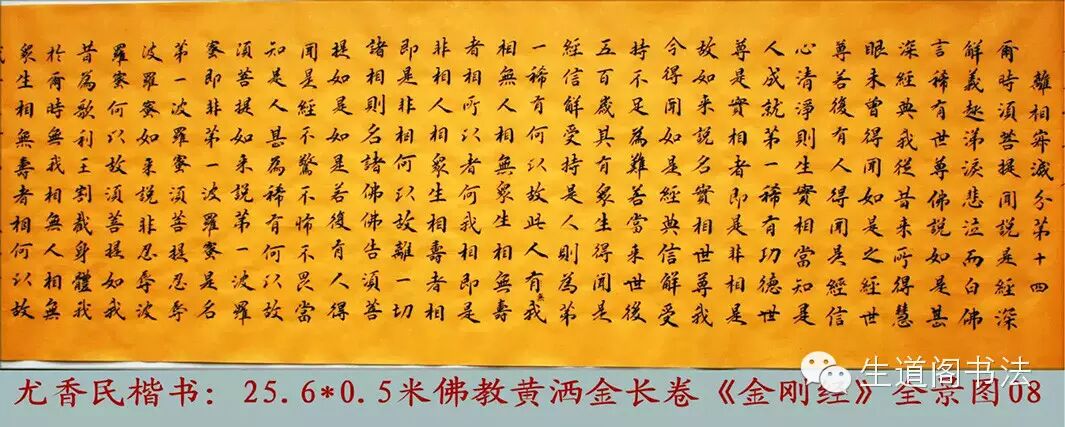 離相寂滅分第十四
爾時須菩提聞說是經深
解義趣涕淚悲泣而白佛
言稀有世尊佛說如是甚
深經典我從昔來所得慧
眼未曾得聞如是之經世
尊若後有人得聞是經信
心清淨則生實相當知是
人成就第一稀有功德世
尊是實相者即是非相是
故如來說名實相世尊我
今得聞如是經典信解受
持不足為難若當來世後
五百歲其有眾生得聞是
經信解受持是人則為第
一稀有何以故此人有無我
相無人相無眾生相無壽
者相所以者何我相即是
非相人相眾生相壽者相
即是非相何以故離一切
諸相則名諸佛佛告須菩
提如是如是若復有人得
聞是經不驚不怖不畏當
知是人甚為稀有何以故
須菩提如來說第一波羅
蜜即非第一波羅蜜是名
第一波羅蜜須菩提忍辱
波羅蜜如來說非忍辱波
羅蜜何以故須菩提如我
昔為歌利王割截身體我
於爾時無我相無人相無
眾生相無壽者相何以故
生道阁书法
尤香民楷书：25.6*0.5米佛教黄洒金长卷《金刚经》全景图08